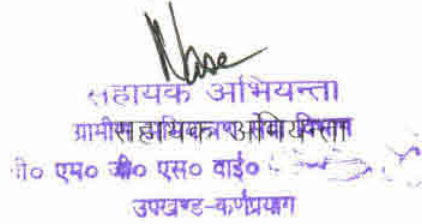 सहायक अभियन्ता
ग्रामीण
सहायक अभियन्ता
पी० एम० जी० एस० वाई०
उपखण्ड-कर्णप्रयाग